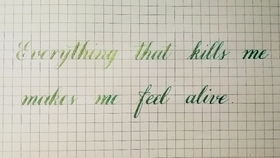 Everything that kills me
makes me feel alive.